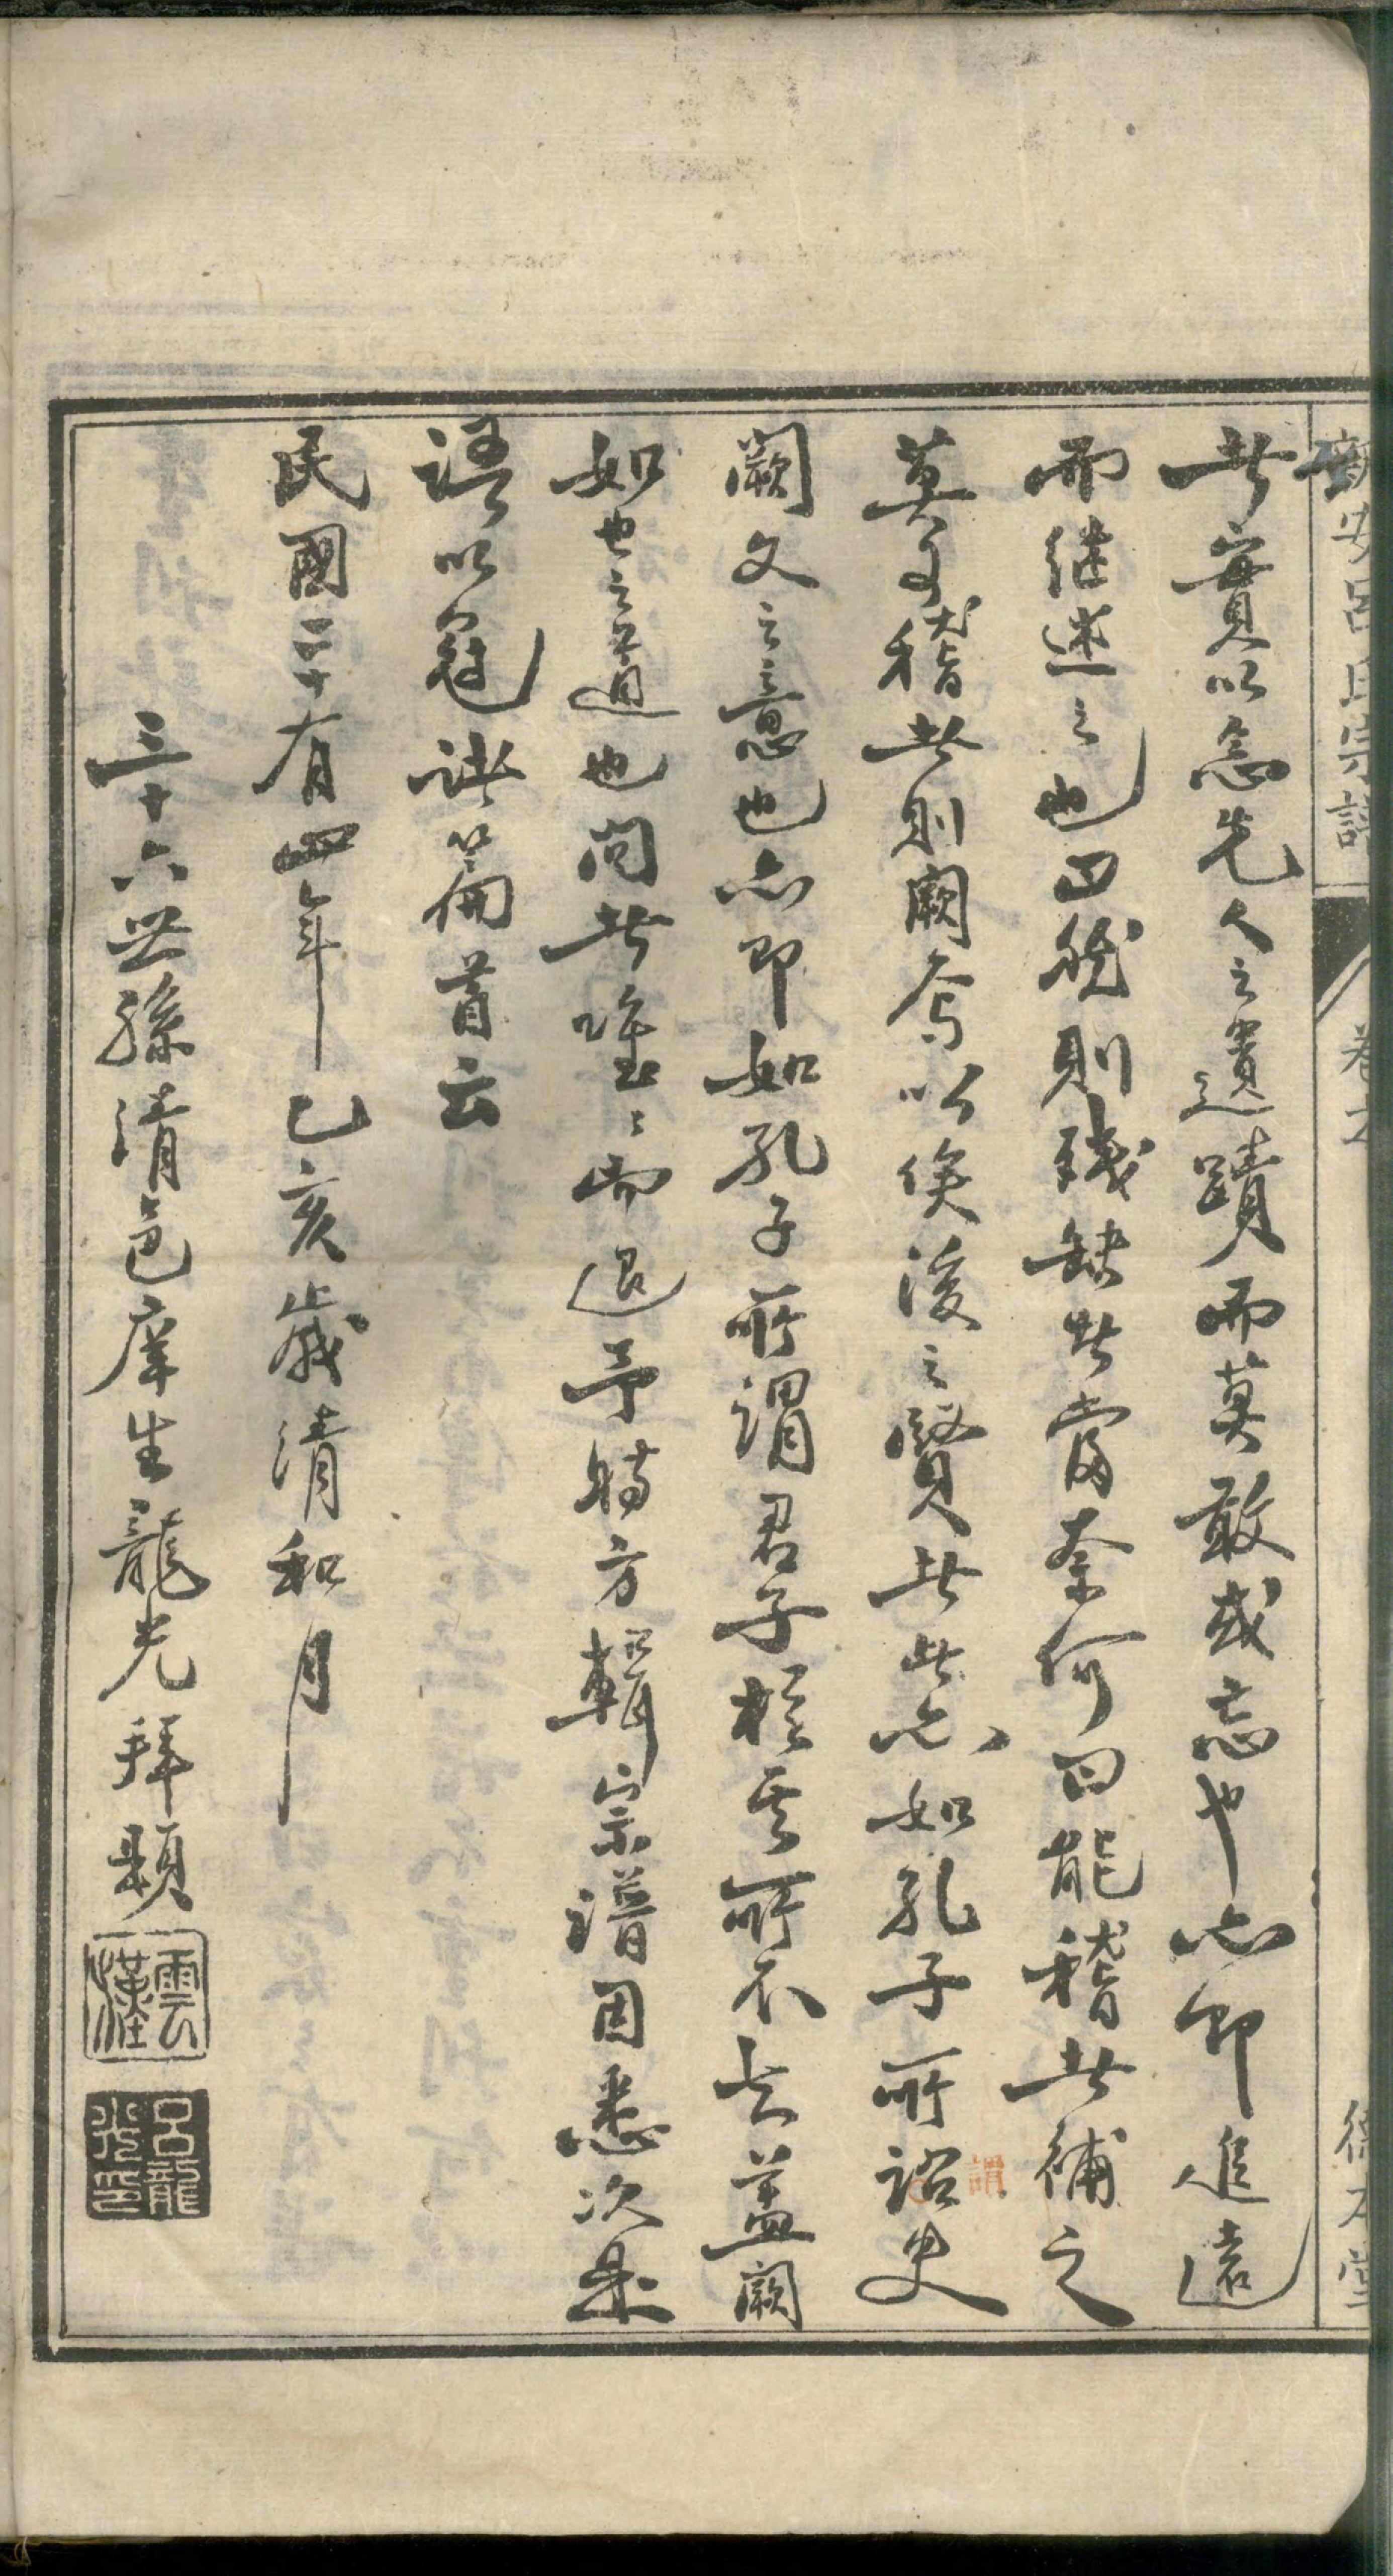 新安呂氏宗譜 卷之 德本堂
者實以念先人之遺蹟而莫敢或忘也亦即追遠
而继述之也曰然則残缺者當奈何曰能稽者補之
莫可稽者則闕焉以俟後之賢者此亦如孔子所詒史
謂
闕文之意也亦即如孔子所謂君子於其所不知蓋闕
如也之道也問者唯〻而退予時方輯宗譜因悉次是
語以冠諸篇首云
民國二十有四年乙亥歲清和月
三十六世孫清邑庠生龍光拜題
雲漢
呂龍光印